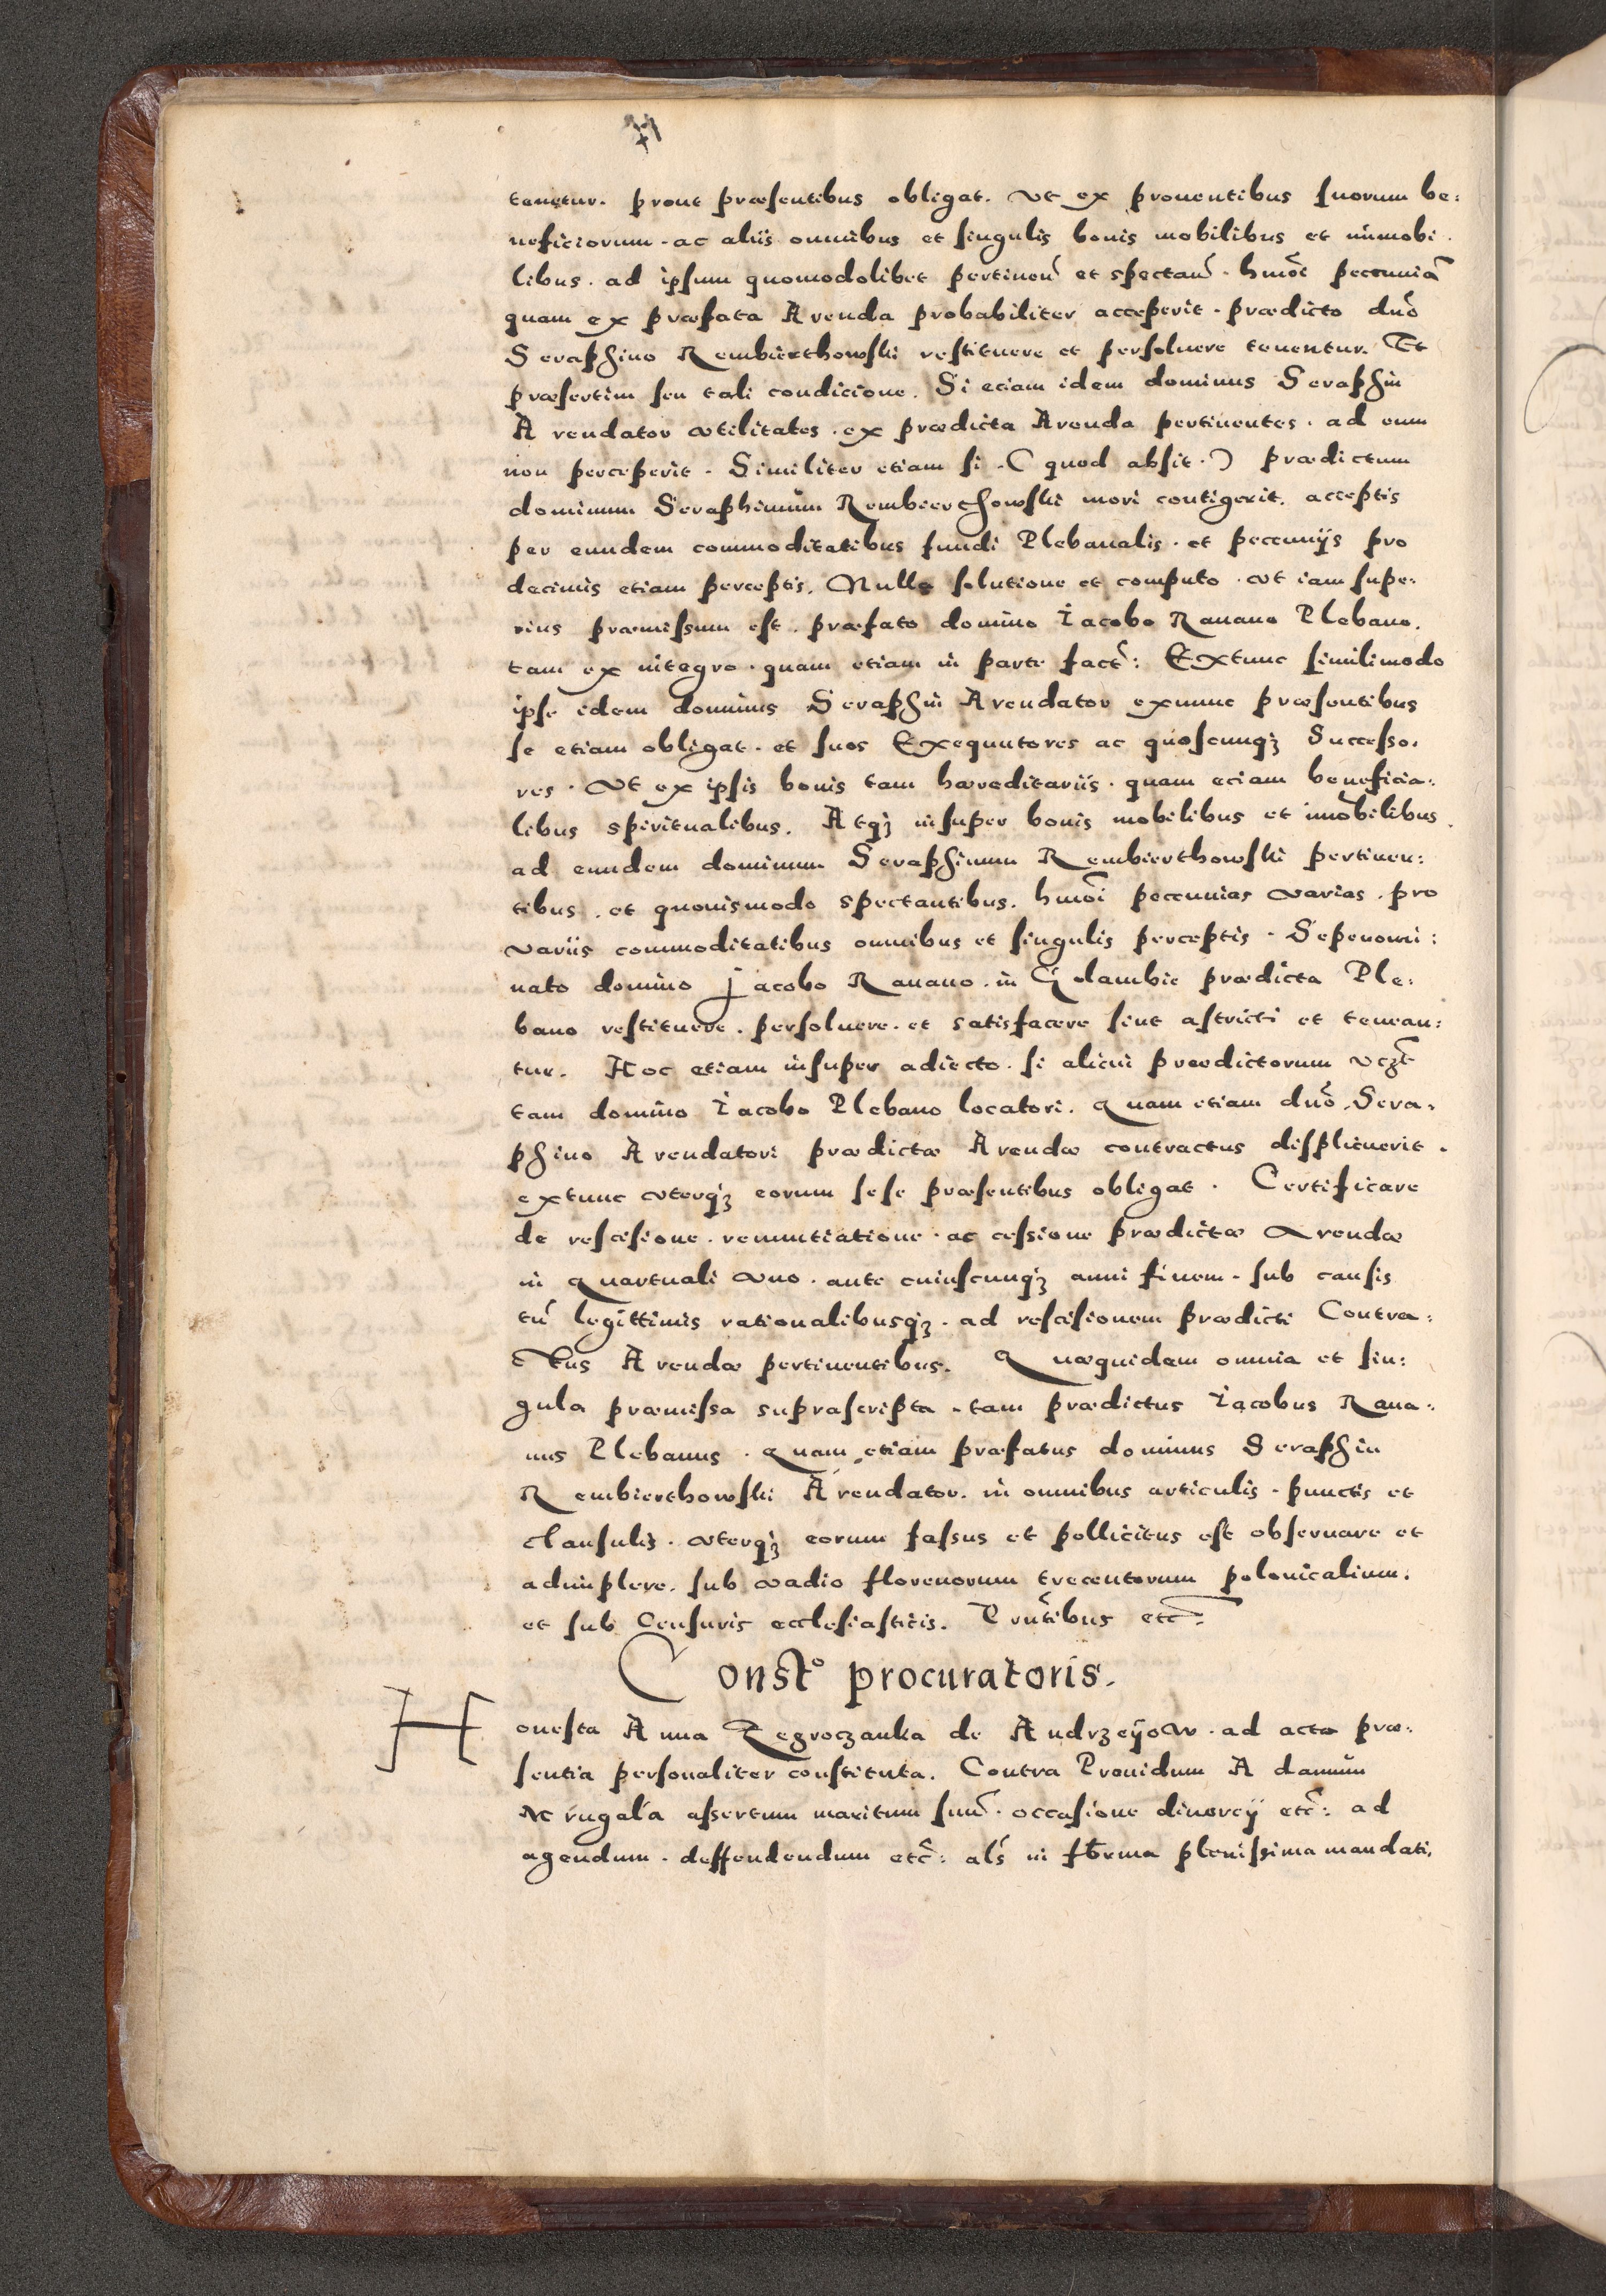 tenetur. prout præsentibus obligat. Vt ex prouentibus suorum be:
neficiorum. ac aliis omnibus et singulis bonis mobilibus et immobi.
libus. ad ipsum quomodolibet pertineñ et spectañ. hmõi pecuniã
quam ex præfata Arenda probabiliter acceperit. prædicto dnõ
Seraphino Rembierthowski restituere et persoluere tenentur. Et
præsertim seu tali condicione. Si eciam idem dominus Seraphin
Arendator vtilitates. ex prædicta Arenda pertinentes. ad eum
non perceperit. Similiter etiam si. (quod absit.) prædictum
dominum Seraphinum Rembierthowski mori contigerit. acceptis
per eundem commoditatibus fundi Plebanalis. et pecuniis pro
decimis etiam perceptis. Nulla solutione et computo. vt iam supe:
rius præmissum est. præfato domino Iacobo Ranano Plebano.
tam ex integro. quam etiam in parte fact̃: Extunc similimodo
ipse idem dominus Seraphin Arendator exnunc præsentibus
se etiam obligat. et suos Exequutores ac quoscunqʒ Successo.
res. Vt ex ipsis bonis tam hæreditariis. quam eciam beneficia:
libus spiritualibus. Atqʒ insuper bonis mobilibus et imõbilibus.
ad eundem dominum Seraphinum Rembierthowski pertinen:
tibus. et quouismodo spectantibus. hmõi pecunias varias. pro
variis commoditatibus omnibus et singulis perceptis. Sepenomi:
nato domino Jacobo Ranano. in Golambie prædicta Ple:
bano restituere. persoluere. et satisfacere sint astricti et tenean:
tur. Hoc etiam insuper adiecto. si alicui prædictorum vczt̃
tam domino Iacobo Plebano locatori. Quam etiam dnõ. Sera.
phino Arendatori prædictæ Arendæ contractus displicuerit.
extunc vterqʒ eorum sese præsentibus obligat. Certificare
de rescisione. renuntiatione. ac cessione prædictæ Arendæ
in Quartuali vno. ante cuiuscunqʒ anni finem. sub causis
tñ legittimis rationalibusqʒ. ad rescisionem prædicti Contra:
ctus Arendæ pertinentibus. Quæquidem omnia et sin:
gula præmissa suprascripta. tam prædictus Iacobus Rana:
nus Plebanus. Quam etiam præfatus dominus Seraphin
Rembierthowski Arendator. in omnibus articulis. punctis et
clausulis. vterqʒ eorum fassus et pollicitus est obseruare et
adimplere. sub vadio florenorum trecentorum polonicalium.
et sub Censuris ecclesiasticis. Prñtibus etc̃:
Constᵒ procuratoris.
Honesta Anna Zegroczanka de Andrzeyow. ad acta præ:
sentia personaliter constituta. Contra Prouidum Adamum
assertum maritum suũ. occasione diuorcij etc̃: ad
agendum. deffendendum etc̃: als̃ in forma plenissima mandati.